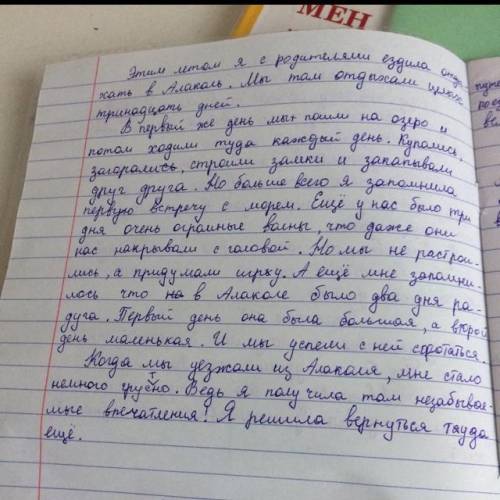 МЕН
Этим летом я с родителями ездила отды
хать в Алаколь. Мы там отдыхали целых
тринадцать дней.
В первый же день мы пошли на озеро и
потом ходили туда каждый день. Купались,
загорались, строили замки и закапывали
друг друга. Но больше всего я запомнила
первую встречу с морем. Ещё у нас было три
дня очень огромные волны, что даже они
нас накрывали с головой. Но мы не растрои-
лись, а придумали игру. А ещё мне запомни-
лось что в Алаколе было два дня ра-
дуга. Первый день она была большая, а второй
день маленькая. И мы успели с ней сфотаться.
Когда мы уезжали из Алаколя, мне стало
немного грустно. Ведь я получила там незабывае-
мые впечатления! Я решила вернуться туда
ещё.